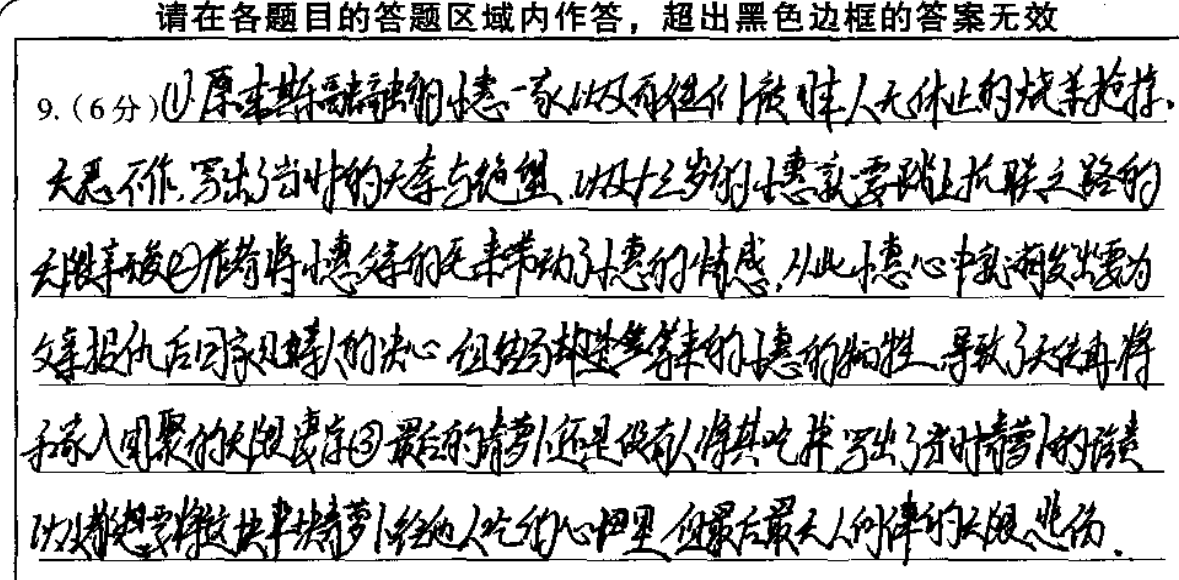 请在各题目的答题区域内作答，超出黑色边框的答案无效
9.(6分)①原来其乐融融的小惠一家以及百姓们被日本人无休止的烧杀抢掠,
无恶不作,写出了当时的无奈与绝望,以及十三岁的小惠就要踏上抗联之路的
无限辛酸②将小惠的到来带动了小惠的情感,从此小惠心中就萌发出要为
父亲报仇后回家见母亲的决心,但结局却是等来的小惠的牺牲,导致了无法再将
和家人团聚的无限凄凉③最后的青萝卜还是没有人将其吃掉,写出了当时青萝卜的珍贵
以及都想要将这块半块青萝卜给他人吃的心理,但最后最无人的无限悲伤.